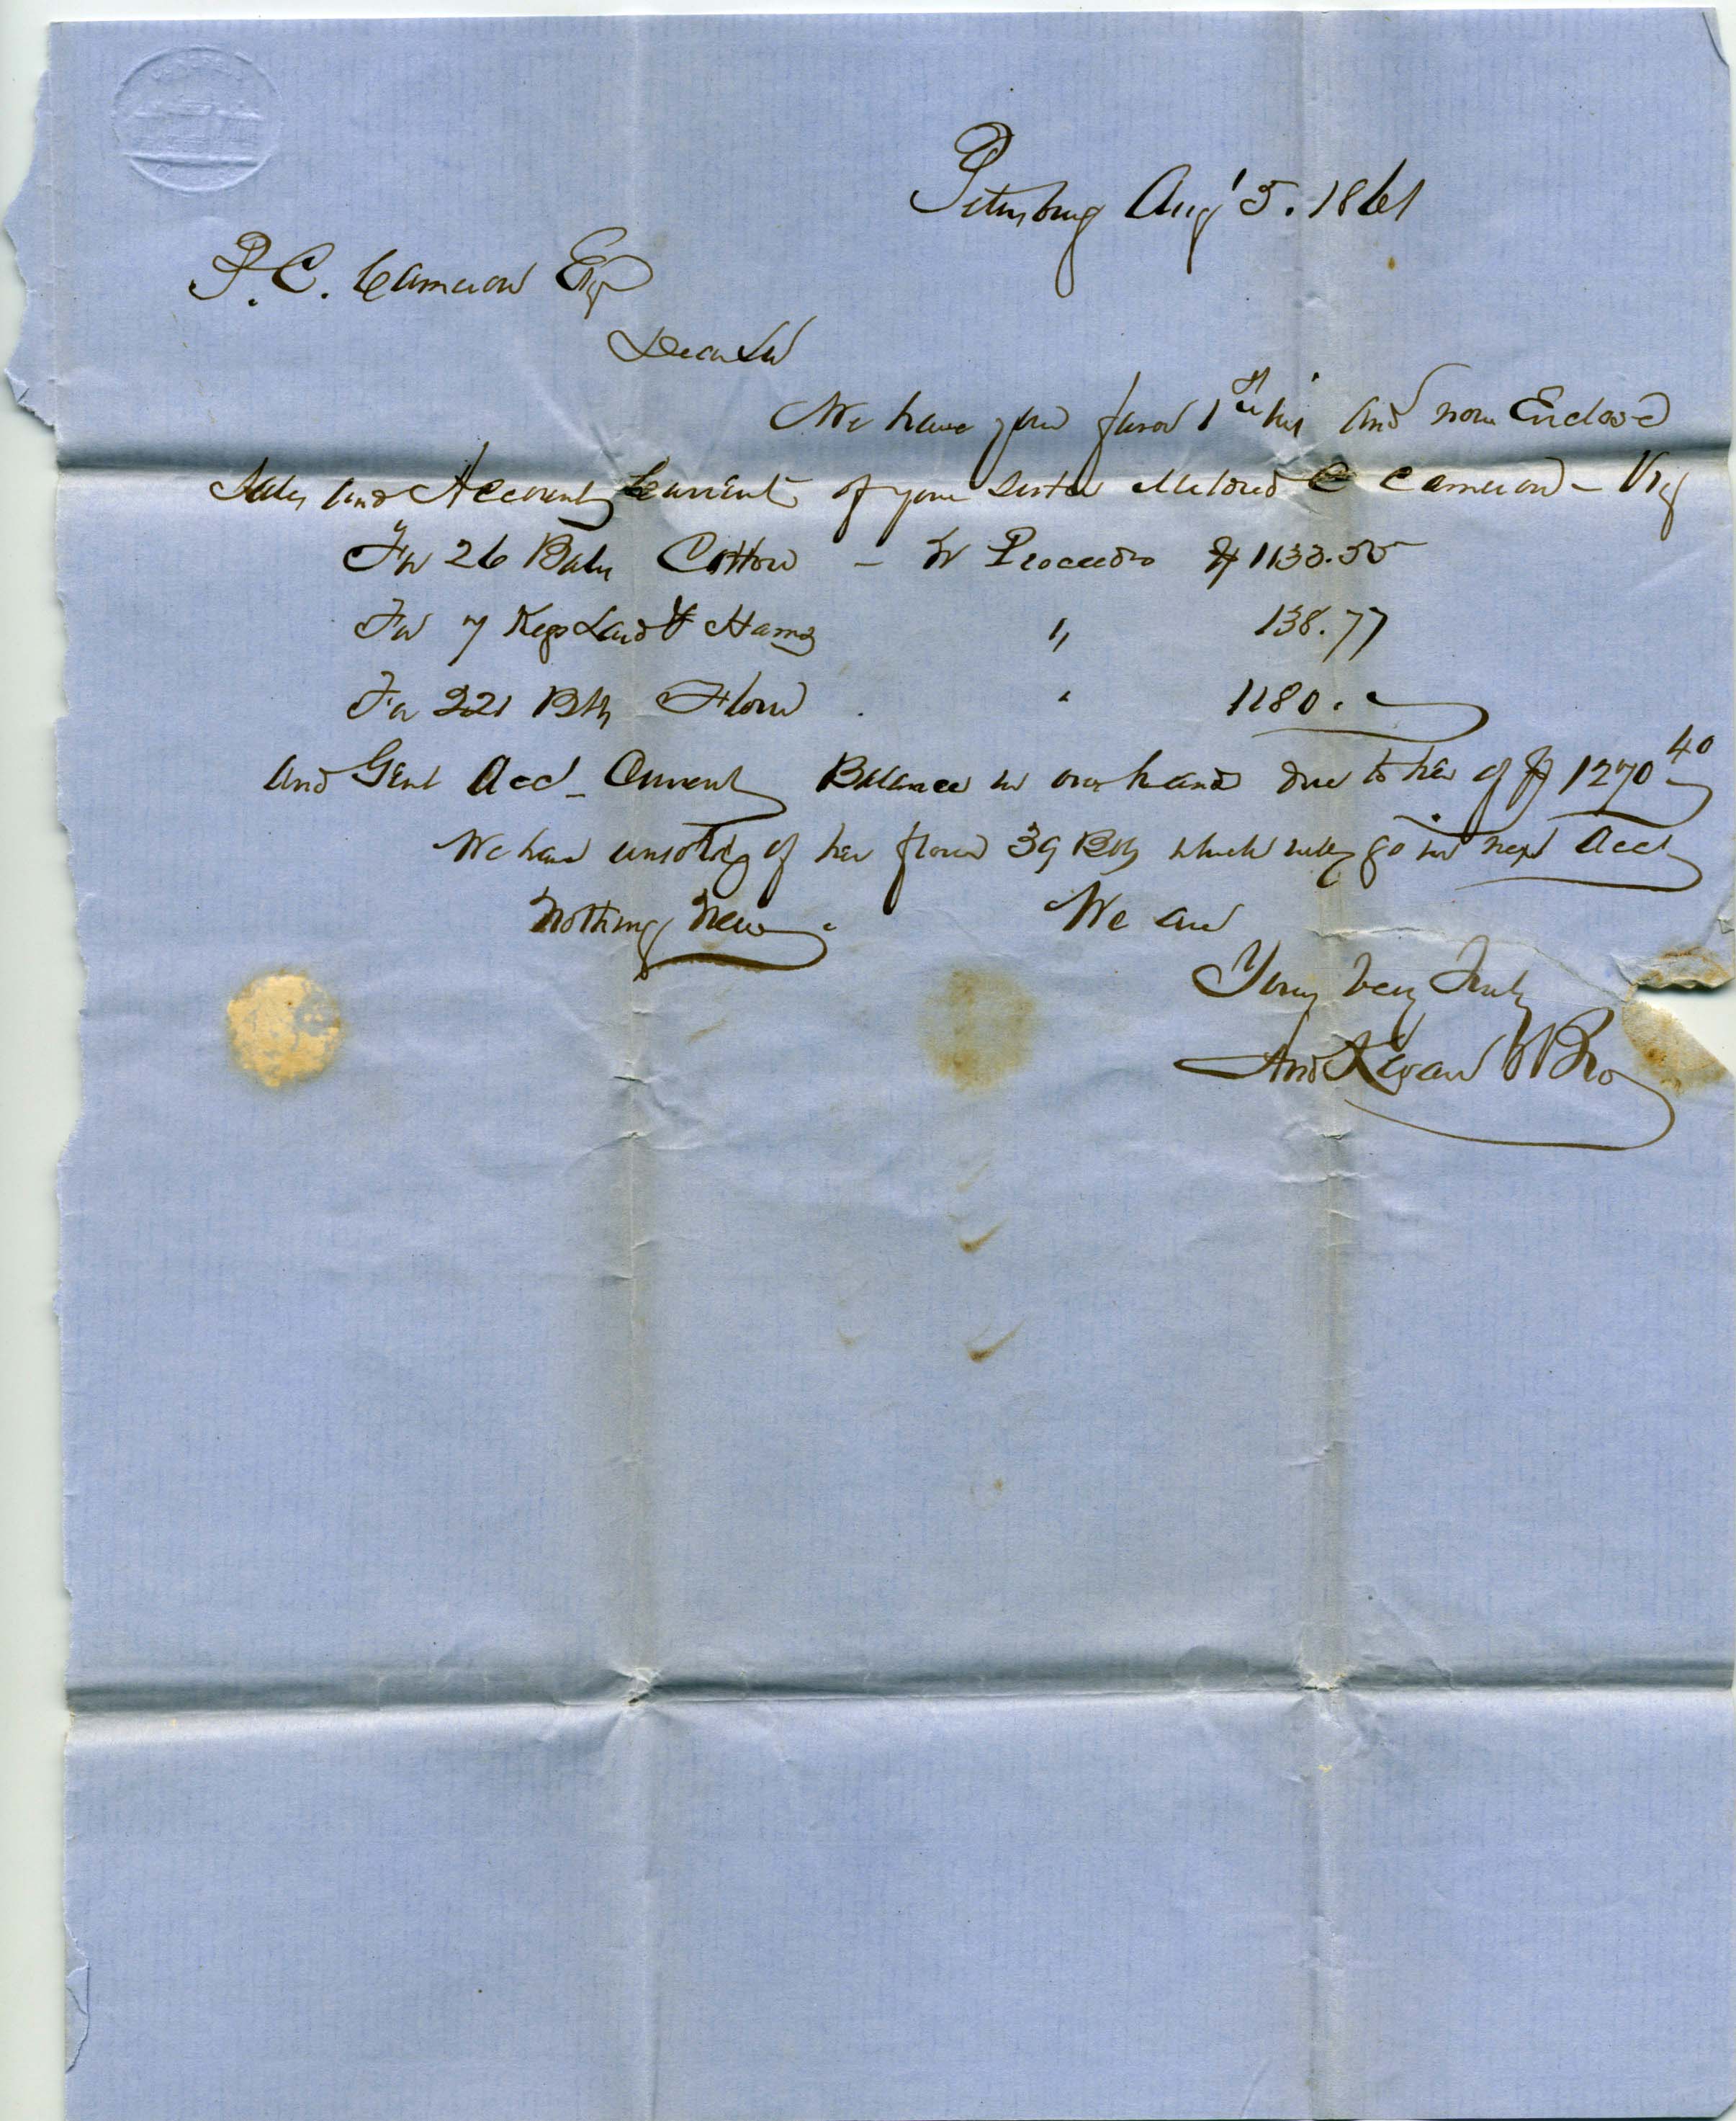 Petersburg Aug' 5. 1861
P. C. Cameron Esq
Dear Sir
We have your favor 1st this and now Enclose
Sales and Account Current of your sister Mildred C Cameron - Viz
For 26 Bales Cotton - Nt Proceeds $ 1133.55
For 7 Kegs Lard & Hams " 138.77
For 221 Bbls Flour " 1180. -
and Genl Acct Current Balance in our hands due to her of $ 1270 40
We have unsold of her flour 39 Bbls which will go in next Acct
Nothing New. We are
Yours Very Truly
And Kevan & Bro